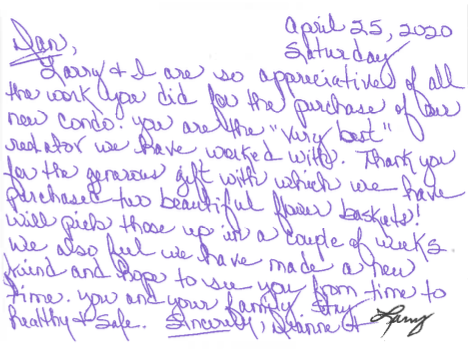 April 25, 2020
Dan, Saturday
Larry & I are so appreciative of all
the work you did for the purchase of our
new condo. You are the "very best"
realator we have worked with. Thank you
for the generous gift with which we have
purchased two beautiful flower baskets!
Will pick those up in a couple of weeks.
We also feel we have made a new
friend and hope to see you from time to
time. You and your family stay
healthy & safe. Sincerely, Dianne & Larry